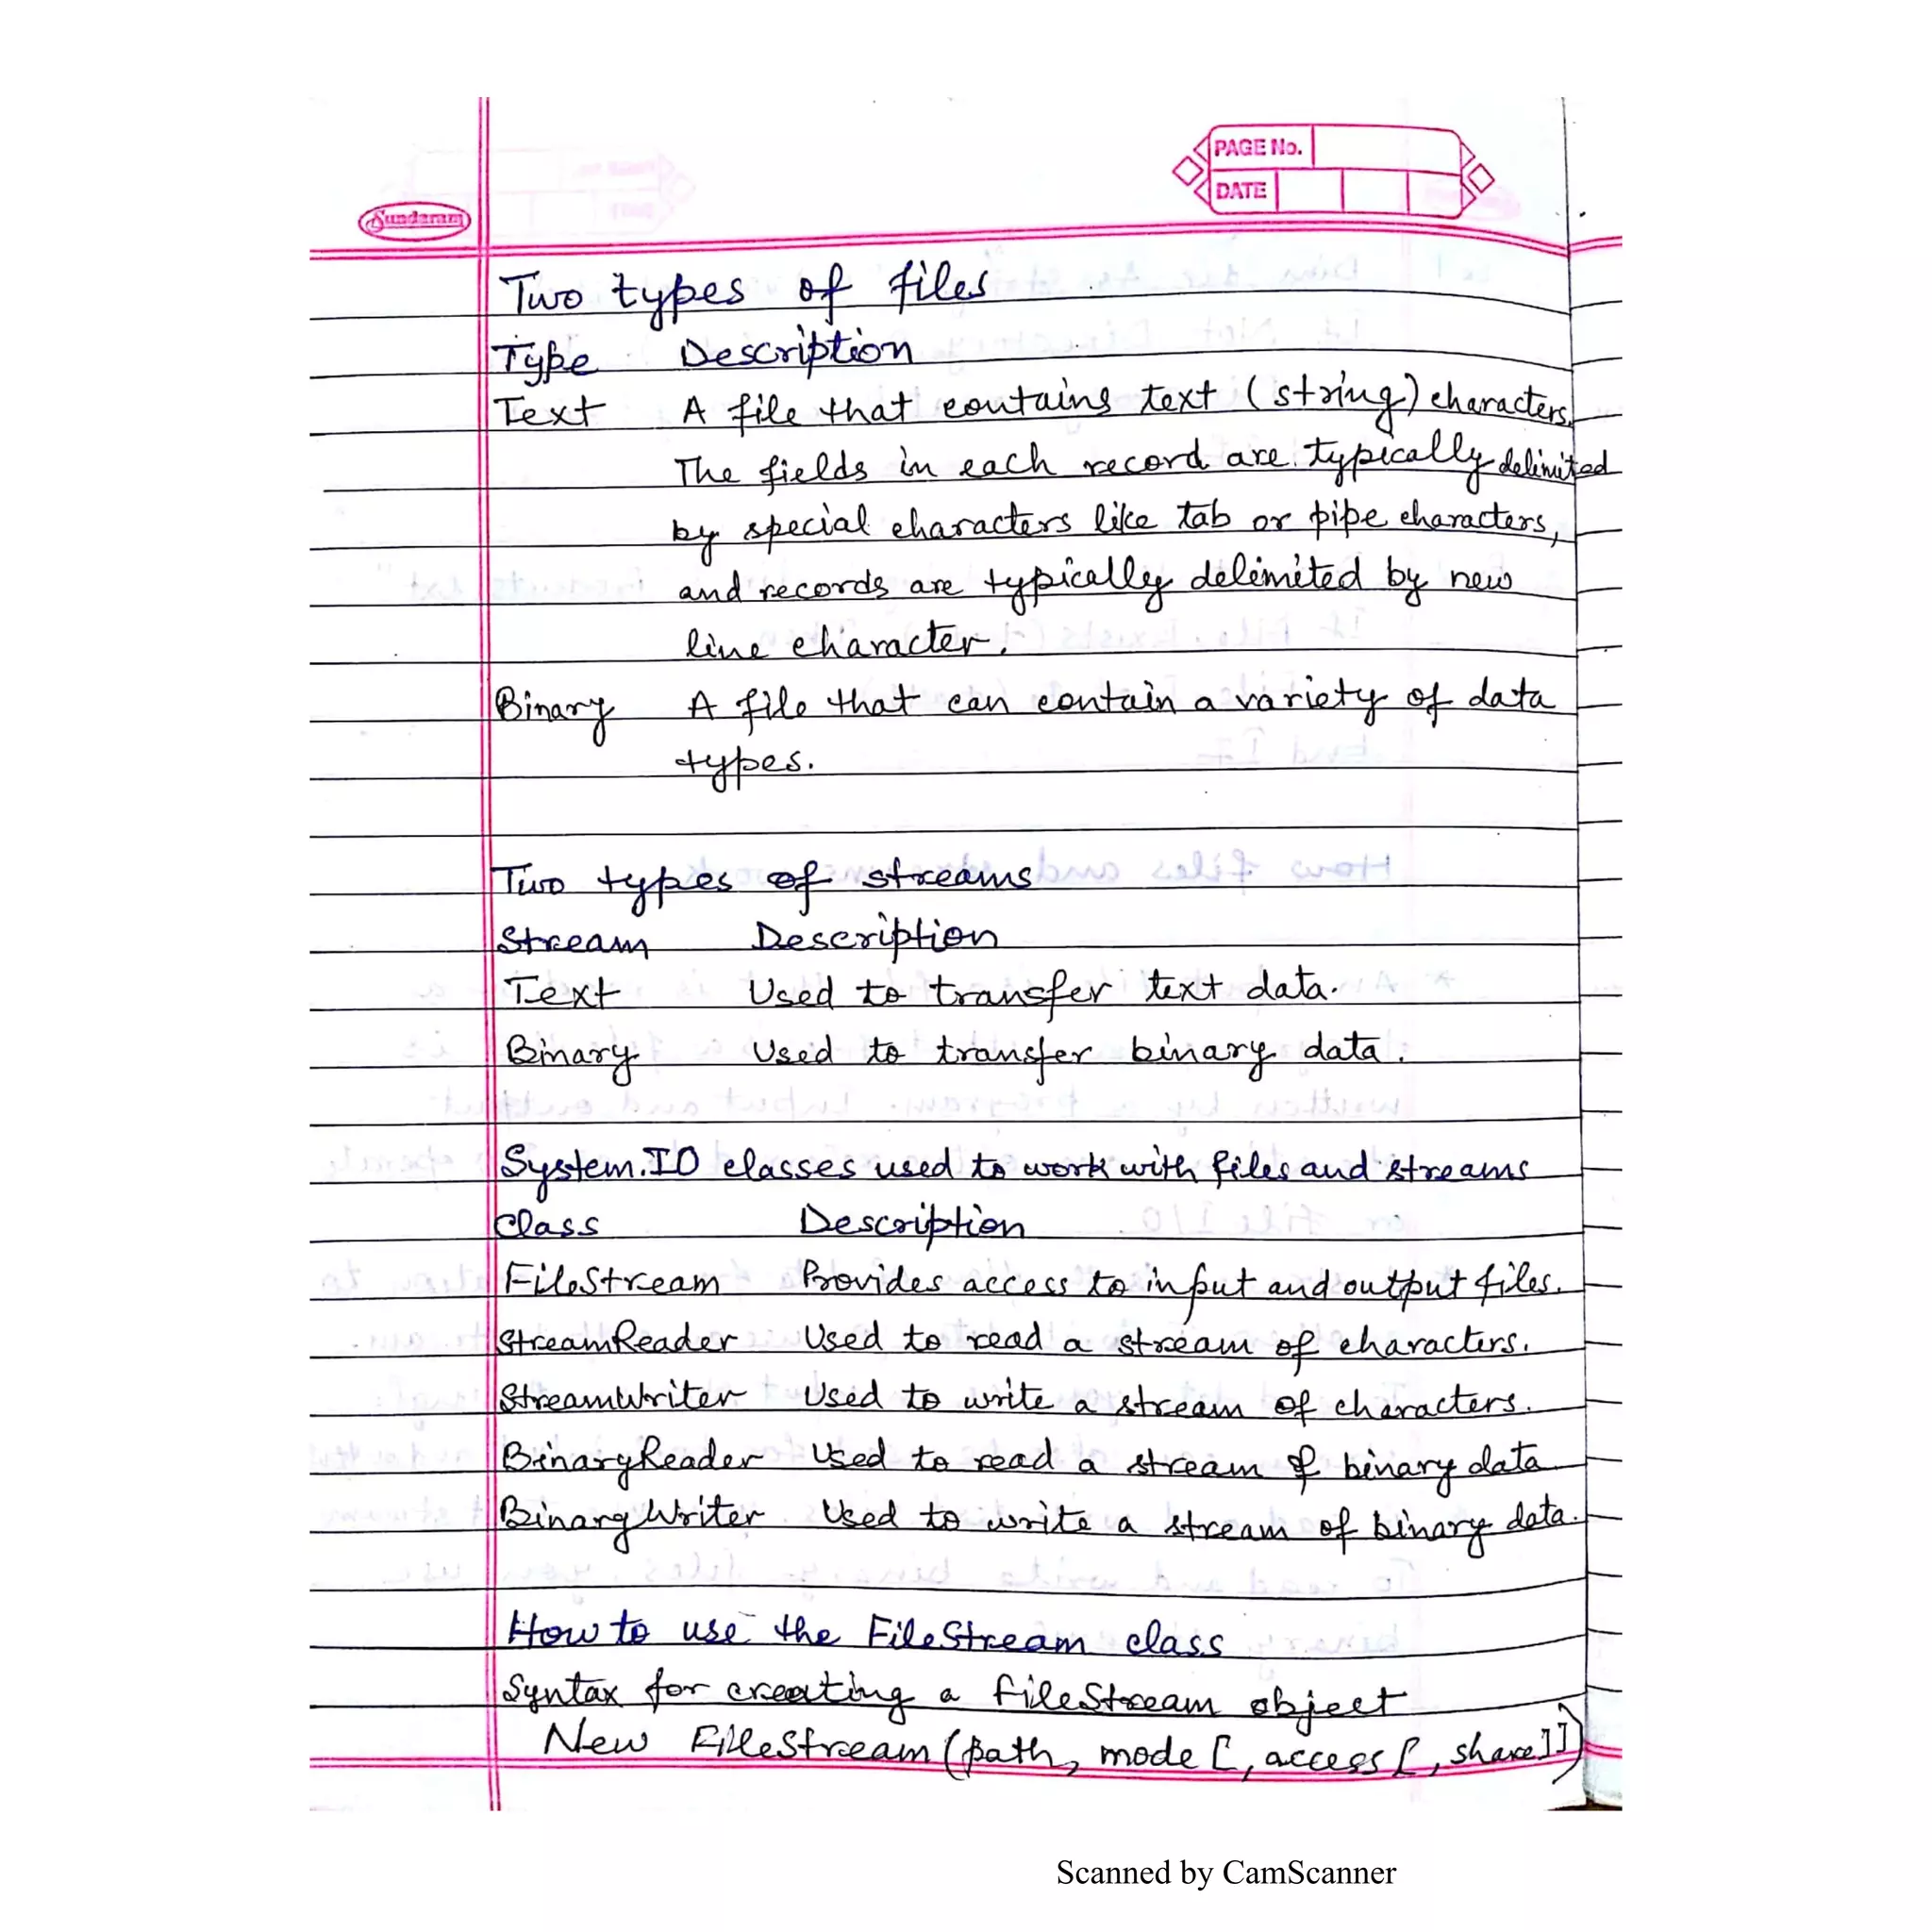 PAGE No.
DATE
Sundaram
Two types of files
Type Description
Text A file that contains text (string) characters.
The fields in each record are typically delimited
by special characters like tab or pipe characters,
and records are typically delimited by new
line character.
Binary A file that can contain a variety of data
types.
Two types of streams
Stream Description
Text Used to transfer text data.
Binary Used to transfer binary data.
System.IO classes used to work with files and streams
Class Description
FileStream Provides access to input and output files.
StreamReader Used to read a stream of characters.
StreamWriter Used to write a stream of characters.
BinaryReader Used to read a stream of binary data
BinaryWriter Used to write a stream of binary data.
How to use the FileStream class
Syntax for creating a FileStream object
New FileStream (path, mode [, access [, share]])
Scanned by CamScanner